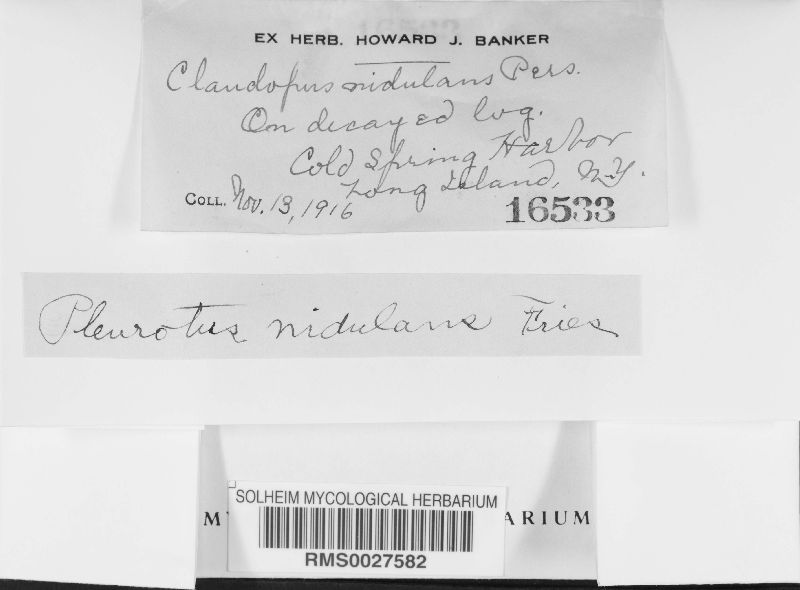 EX HERB. HOWARD J. BANKER
Claudopus nidulans Pers.
On decayed log.
Cold Spring Harbor
Long Island, N.Y.
COLL. Nov. 13, 1916
16533
Pleurotus nidulans Fries
SOLHEIM MYCOLOGICAL HERBARIUM
M ARIUM
RMS0027582